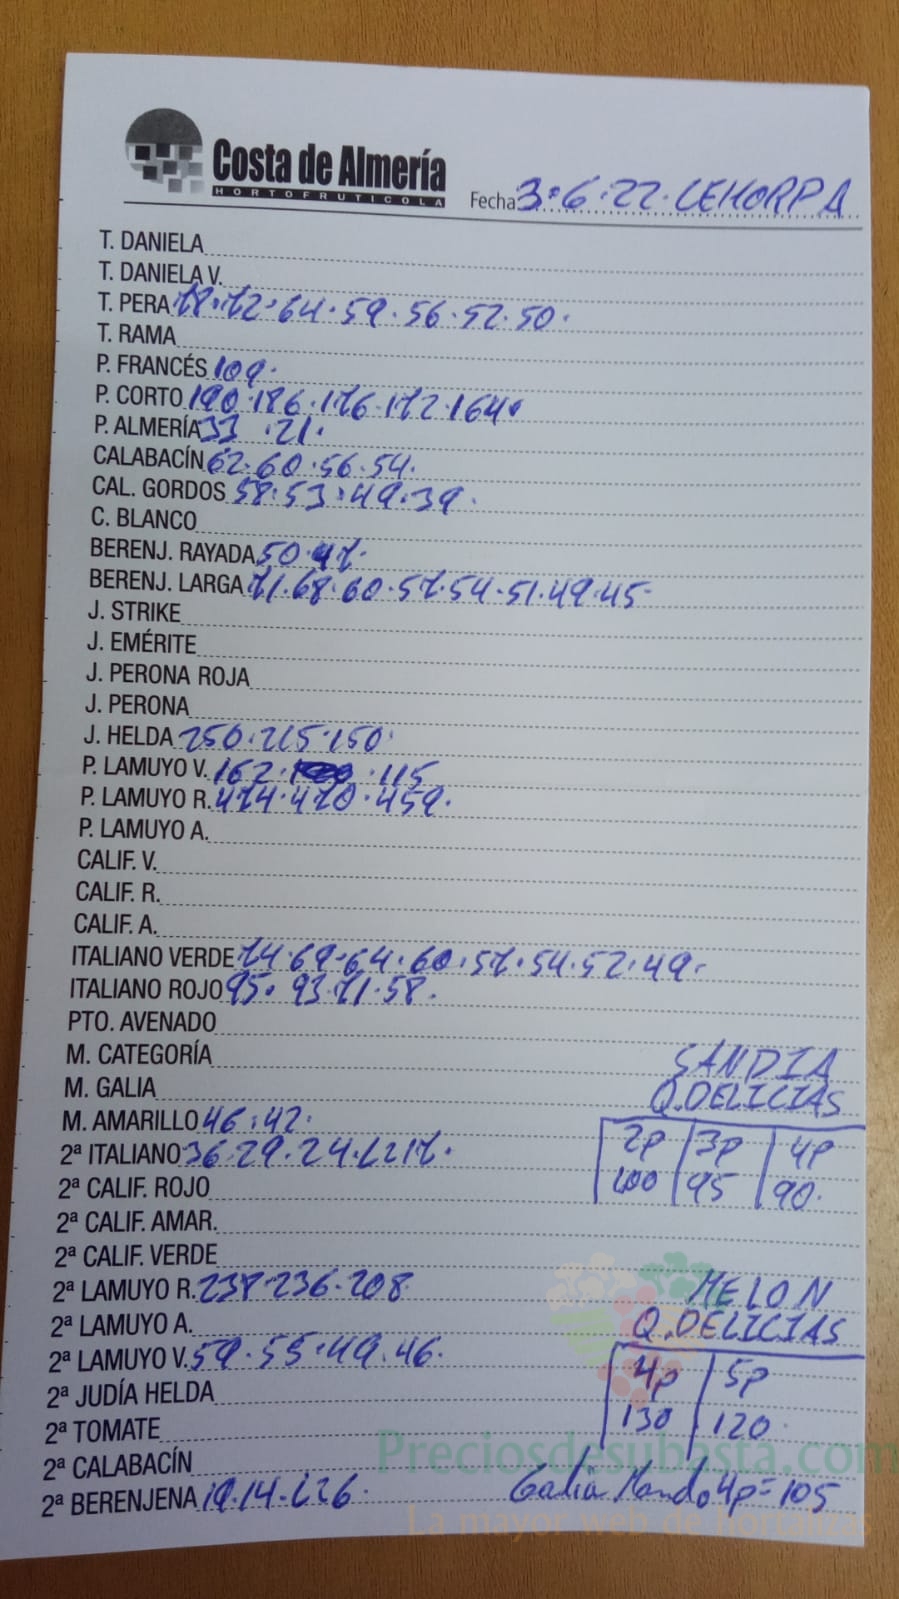 Costa de Almería
HORTOFRUTICOLA
Fecha 3·6·22· CEHORPA
T. DANIELA
T. DANIELA V.
T. PERA 78·72·64·59·56·52·50·
T. RAMA
P. FRANCÉS 109·
P. CORTO 190·186·176·172·164·
P. ALMERÍA 33 ·21·
CALABACÍN 62·60·56·54·
CAL. GORDOS 58·53·49·39·
C. BLANCO
BERENJ. RAYADA 50·47·
BERENJ. LARGA 71·68·60·57·54·51·49·45·
J. STRIKE
J. EMÉRITE
J. PERONA ROJA
J. PERONA
J. HELDA 250·215·150·
P. LAMUYO V. 162· ·115
P. LAMUYO R. 474·470·459·
P. LAMUYO A.
CALIF. V.
CALIF. R.
CALIF. A.
ITALIANO VERDE 74·69·64·60·57·54·52·49·
ITALIANO ROJO 95·93·71·58·
PTO. AVENADO
M. CATEGORÍA
SANDIA
M. GALIA
Q.DELICIAS
M. AMARILLO 46·42·
2ª ITALIANO 36·29·24·L217·
2p 3p 4p
2ª CALIF. ROJO
100 95 90·
2ª CALIF. AMAR.
2ª CALIF. VERDE
2ª LAMUYO R. 236·208
MELON
2ª LAMUYO A.
Q.DELICIAS
2ª LAMUYO V. 59·55·49·46·
4p 5p
2ª JUDÍA HELDA
130 120·
2ª TOMATE
2ª CALABACÍN
Preciosdesubasta.com
2ª BERENJENA 19·14·L26·
Galia Mando 4p=105
La mayor web de hortalizas